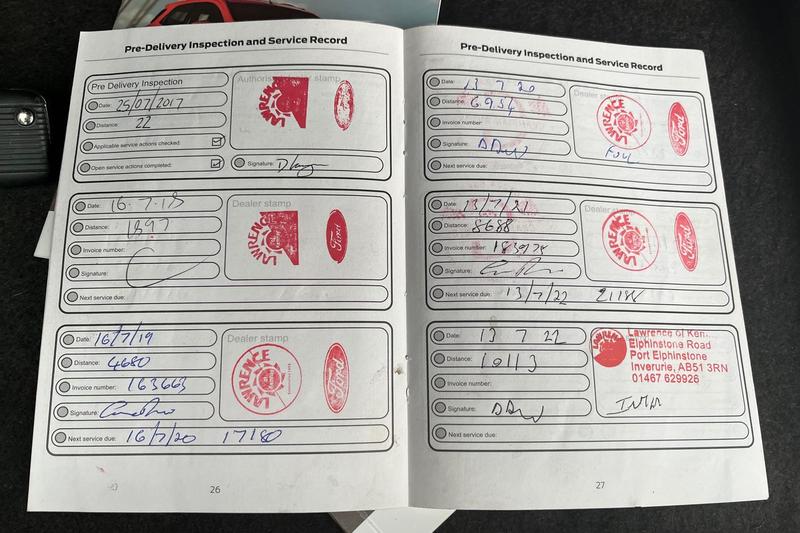 Pre-Delivery Inspection and Service Record
Pre Delivery Inspection
Date: 25/07/2017
Distance: 22
Applicable service actions checked:
Open service actions completed:
Authorised stamp
LAWRENCE
Signature:
Date: 16.7.18
Distance: 1897
Invoice number:
Signature:
Next service due:
Dealer stamp
LAWRENCE
Ford
Date: 16/7/19
Distance: 4680
Invoice number: 163663
Signature:
Next service due: 16/7/20 17180
Dealer stamp
LAWRENCE
Ford
26
Pre-Delivery Inspection and Service Record
Date: 13 7 20
Distance: 6954
Invoice number:
Signature:
Next service due:
Dealer stamp
LAWRENCE
Ford
Date: 13/7/21
Distance: 8688
Invoice number:
Signature:
Next service due: 13/7/22 21188
Dealer
LAWRENCE
Ford
Date: 13 7 22
Distance: 10113
Invoice number:
Signature:
Next service due:
Lawrence of Kem
Elphinstone Road
Port Elphinstone
Inverurie, AB51 3RN
01467 629926
27